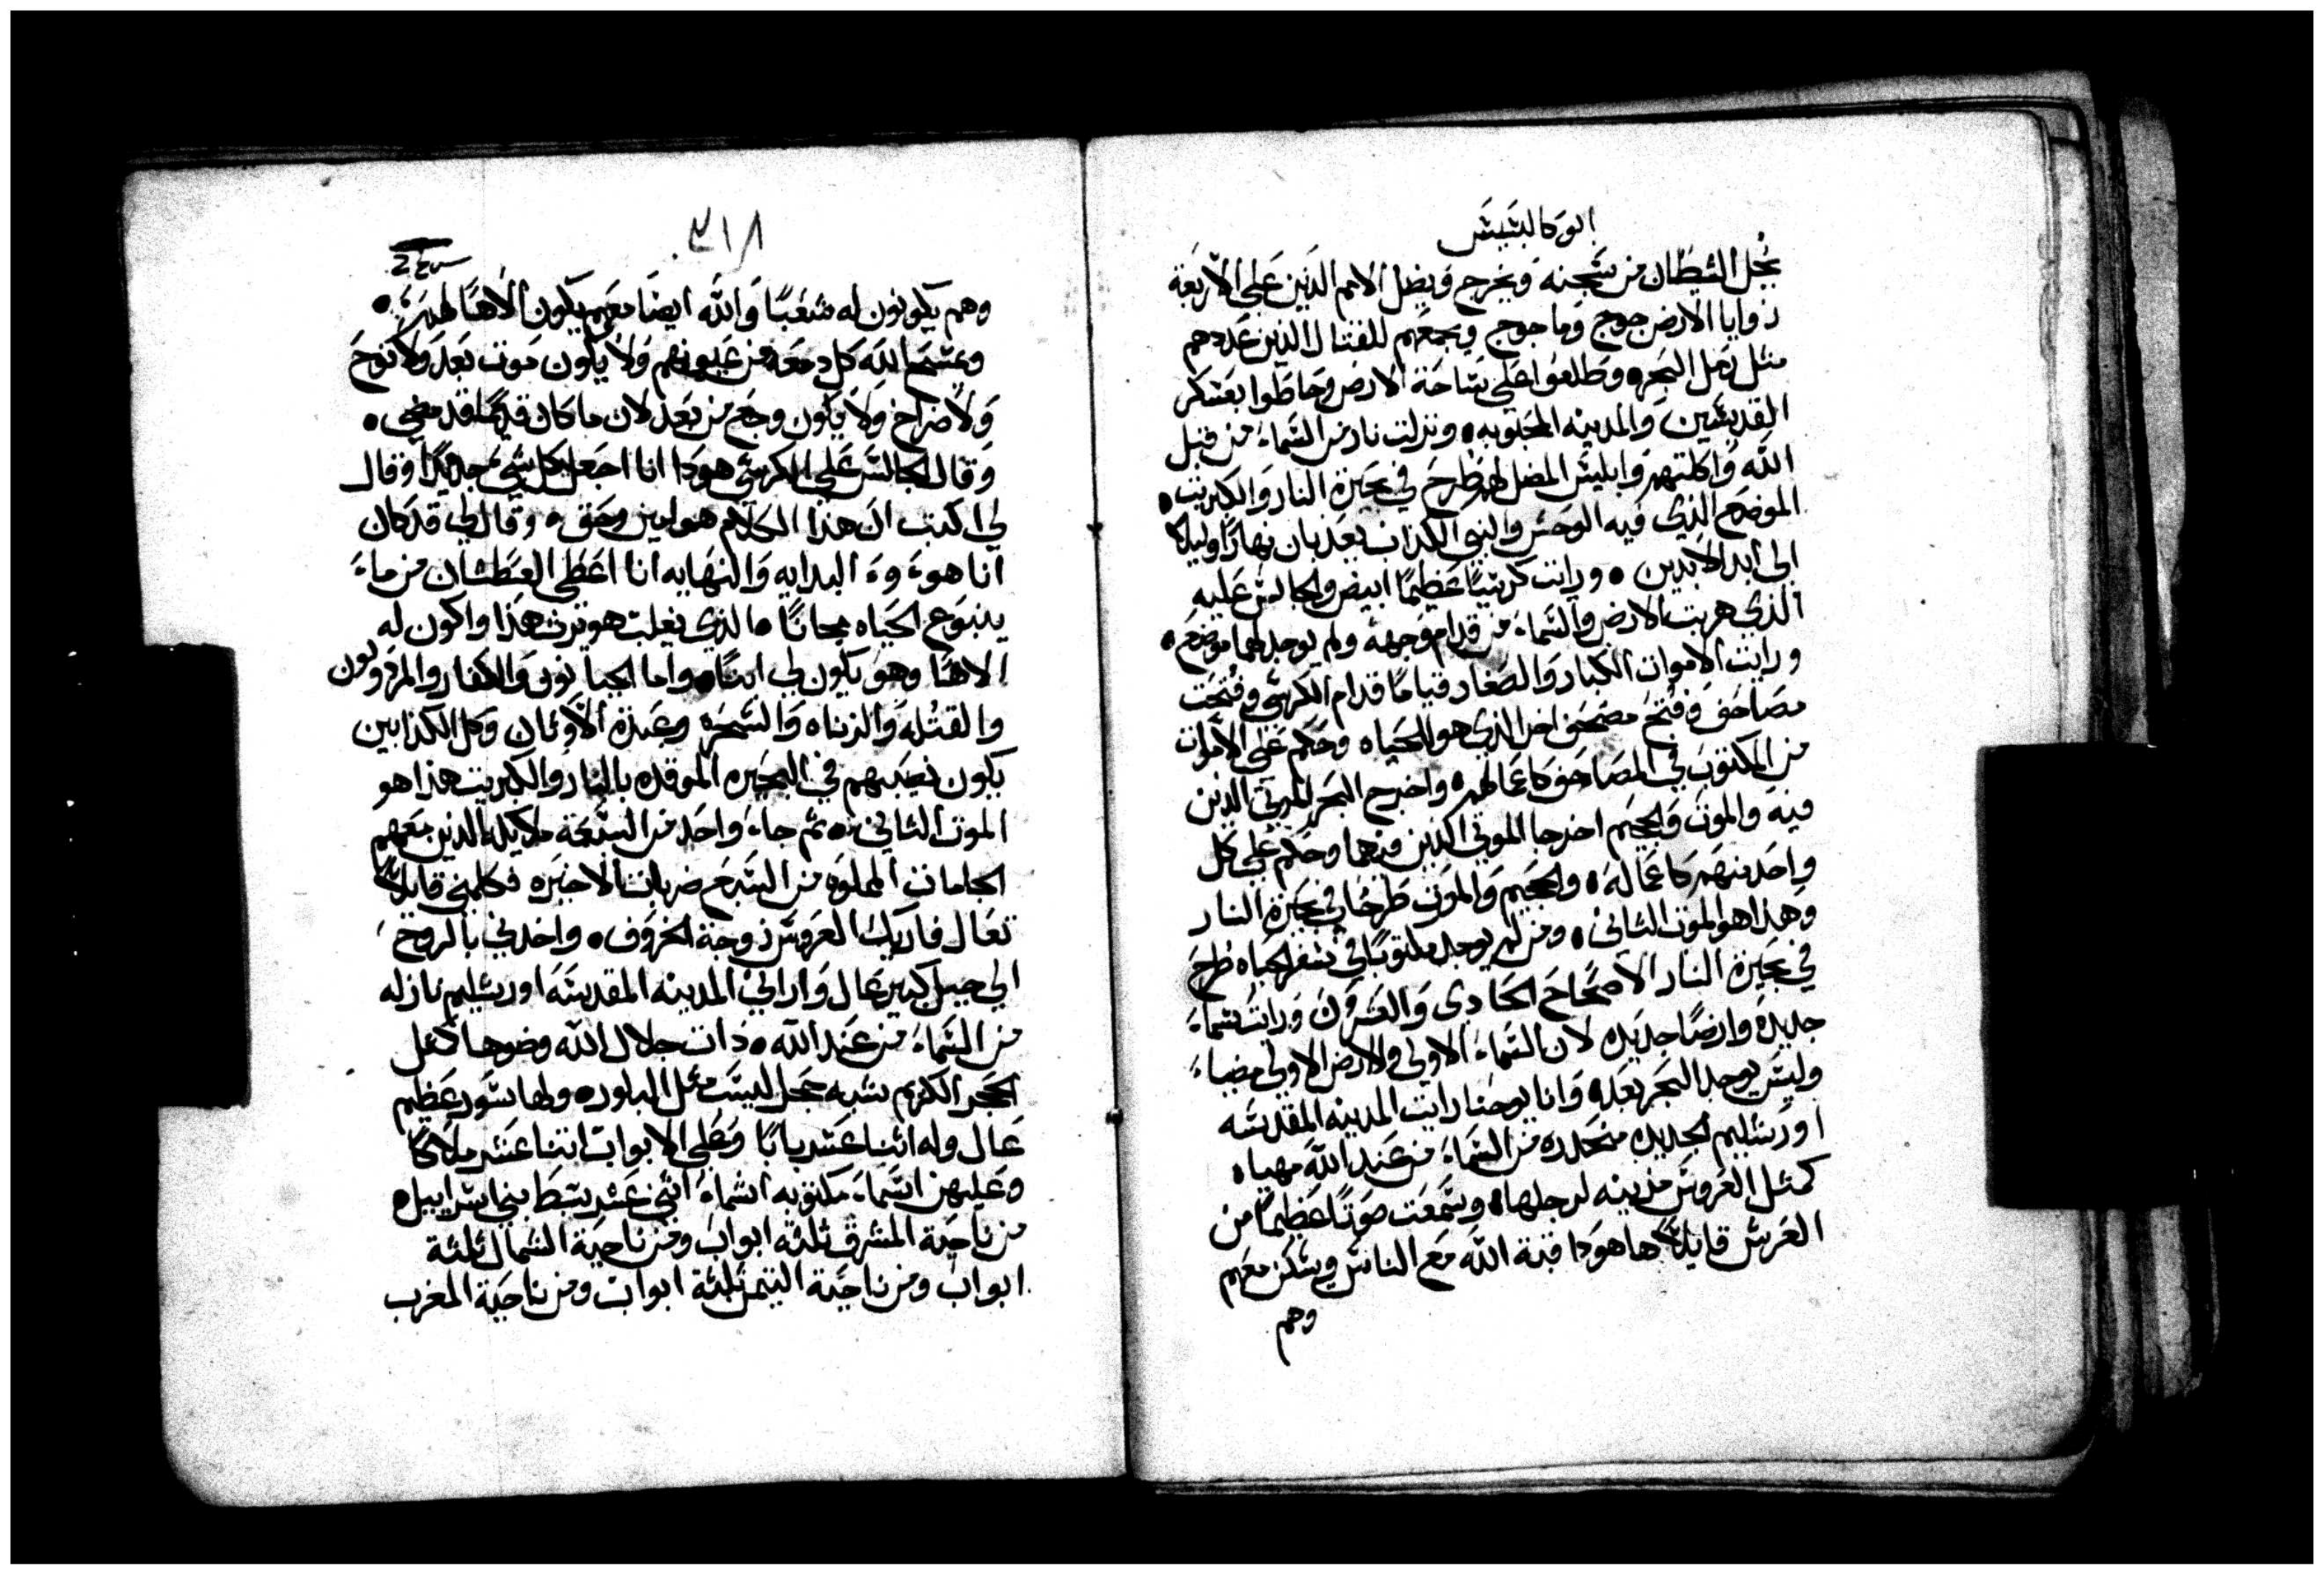 ابوكالبسيس
يحل الشيطان من سجنه ويخرج ويضل الامم الدين على الاربعة
زوايا الارض جوج وماجوج ويجمعهم للقتال الذين عددهم
مثل رمل البحر وطلعوا على ساحة الارض وحاطوا بعسكر
القديسين والمدينه المحبوبه ونزلت نار من السماء من قبل
الله واكلتهم وابليس المضل لهم طرح في بحيرة النار والكبريت
الموضع الذي فيه الوحش والنبي الكذاب يعذبان نهارًا وليلا
الى ابد الابدين ورايت كرسيًا عظيمًا ابيض والجالس عليه
الذي هربت الارض والسماء من قدام وجهه ولم يوجد لهما موضع
ورايت الاموات الكبار والصغار قيامًا قدام الكرسي وفتحت
مصاحف وفتح مصحف اخر الذي هو الحياه وحكم على الاموات
من المكتوب في المصاحف كاعمالهم واخرج البحر الموتى الدين
فيه والموت والجحيم اخرجا الموتى الدين فيهما وحكم على كل
واحد منهم كاعماله والجحيم والموت طرحا في بحيرة النار
وهذا هو الموت الثاني ومن لم يوجد مكتوبًا في سفر الحياه طرح
في بحيرة النار الاصحاح الحادي والعشرون ورايت سماء
جديدة وارضًا جديده لان السماء الاولى والارض الاولى مضيا
وليس يوجد البحر بعد وانا يوحنا رايت المدينه المقدسه
اورشليم الجديده منحدره من السماء من عند الله مهياه
كمثل العروس مزينه لرجلها وسمعت صوتًا عظيمًا من
العرش قايلاً ها هوذا قبة الله مع الناس ويسكن معهم
وهم
٣١٨
وهم يكونون له شعبًا والله ايضا معهم يكون الاهًا لهم
ويمسح الله كل دمعه من عيونهم ولا يكون موت بعد ولا نوح
ولا صراخ ولا يكون وجع من بعد لان ما كان قديمًا قد مضى
وقال الجالس على الكرسي هوذا انا اجعل كل شيء جديدًا وقال
لي اكتب ان هذا الكلام هو امين وحق وقال لي قد كان
انا هوء وء البدايه والنهايه انا اعطى العطشان من ماء
ينبوع الحياه مجانًا الذي يغلب هو يرث هذا واكون له
الاهًا وهو يكون لي ابنًا واما الجبانون والكفار والمرذولون
والقتله والزناه والسحره وعبدة الاوثان وكل الكذابين
يكون نصيبهم في البحيره الموقده بالنار والكبريت هذا هو
الموت الثاني ثم جاء واحد من السبعة ملايكه الذين معهم
الجامات المملوه من السبع ضربات الاخيره فكلمني قايلاً
تعال فاريك العروس زوجة الخروف واخدني بالروح
الى جبل كبير عال واراني المدينه المقدسه اورشليم نازله
من السماء من عند الله ذات جلال الله وضوها كمثل
الحجر الكريم شبه حجر اليشب مثل البلوره ولها سور عظيم
عال وله اثنا عشر بابًا وعلى الابواب اثنا عشر ملاكًا
وعليهن اسماء مكتوبه اسماء اثني عشر سبط بني اسراييل
من ناحية المشرق ثلثة ابواب ومن ناحية الشمال ثلثة
ابواب ومن ناحية التيمن ثلثة ابواب ومن ناحية المغرب